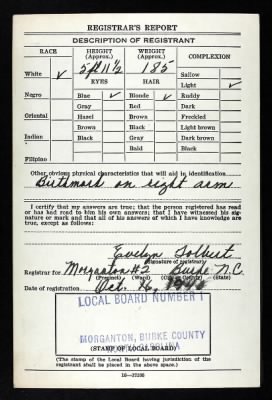 REGISTRAR'S REPORT
DESCRIPTION OF REGISTRANT
RACE HEIGHT (Approx.) WEIGHT (Approx.) COMPLEXION
White ✓ 5 ft 11 ½ 185 Sallow
EYES HAIR Light ✓
Negro Blue ✓ Blonde ✓ Ruddy
Gray Red Dark
Oriental Hazel Brown Freckled
Brown Black Light brown
Indian Black Gray Dark brown
Bald Black
Filipino
Other obvious physical characteristics that will aid in identification
Birthmark on right arm
I certify that my answers are true; that the person registered has read or has had read to him his own answers; that I have witnessed his signature or mark and that all of his answers of which I have knowledge are true, except as follows:
Evelyn Tolbert
(Signature of registrar)
Registrar for Morganton #2 Burke N.C.
(Precinct) (Ward) (City or county) (State)
Date of registration Oct. 16, 1940
LOCAL BOARD NUMBER 1
MORGANTON, BURKE COUNTY
NORTH CAROLINA
(STAMP OF LOCAL BOARD)
(The stamp of the Local Board having jurisdiction of the registrant shall be placed in the above space.)